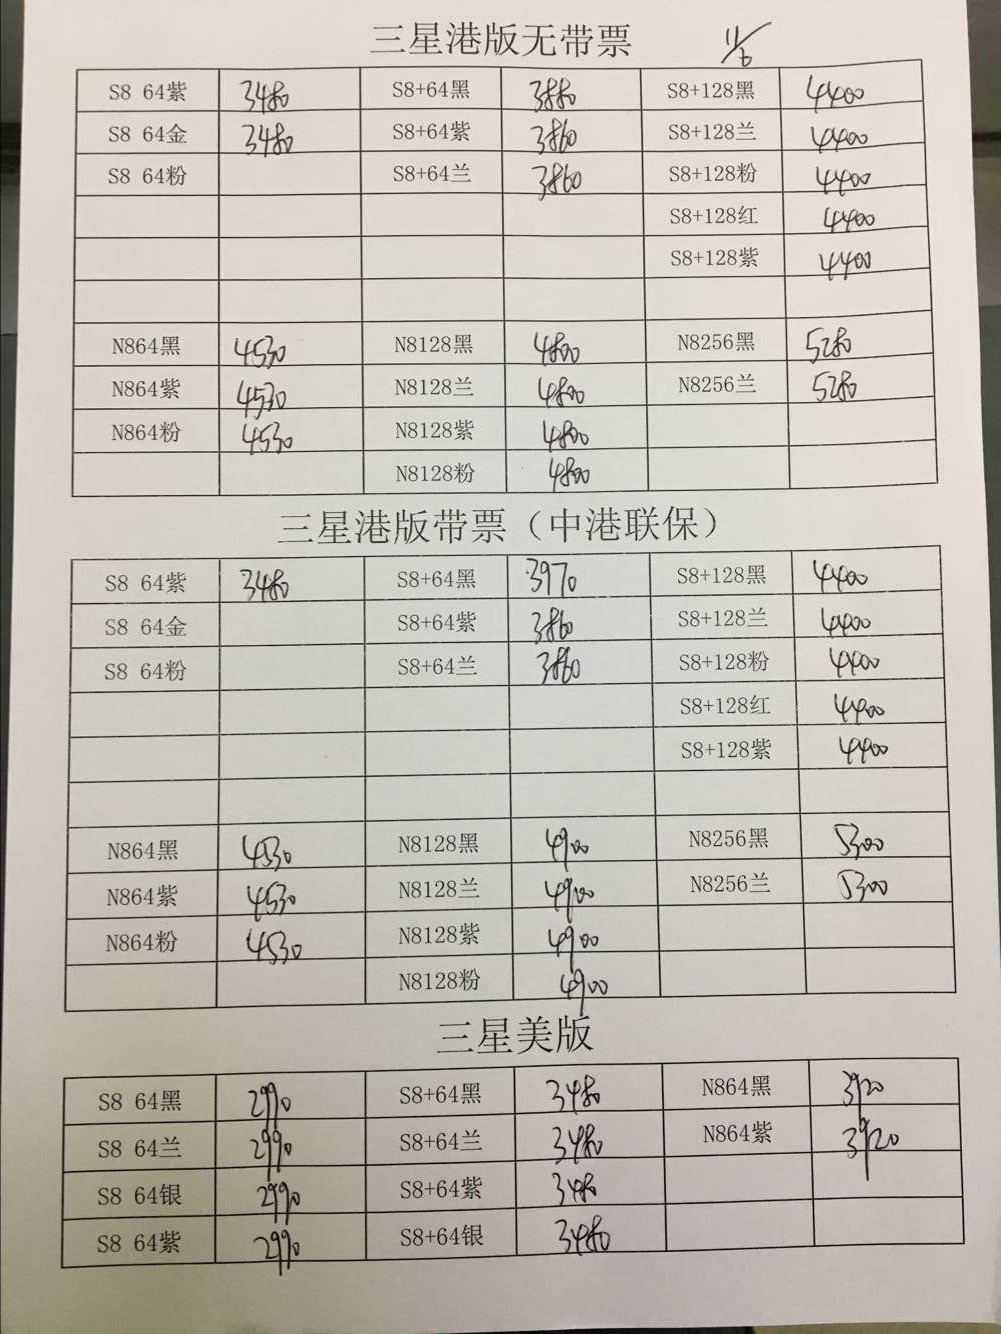 三星港版无带票 11/6
S8 64紫 3480 S8+64黑 3880 S8+128黑 4400
S8 64金 3480 S8+64紫 3860 S8+128兰 4400
S8 64粉 S8+64兰 3860 S8+128粉 4400
S8+128红 4400
S8+128紫 4400
N864黑 4530 N8128黑 4800 N8256黑 5280
N864紫 4530 N8128兰 4800 N8256兰 5280
N864粉 4530 N8128紫 4800
N8128粉 4800
三星港版带票（中港联保）
S8 64紫 3480 S8+64黑 3970 S8+128黑 4400
S8 64金 S8+64紫 3860 S8+128兰 4400
S8 64粉 S8+64兰 3860 S8+128粉 4400
S8+128红 4400
S8+128紫 4400
N864黑 4530 N8128黑 4900 N8256黑 5300
N864紫 4530 N8128兰 4900 N8256兰 5300
N864粉 4530 N8128紫 4900
N8128粉 4900
三星美版
S8 64黑 2990 S8+64黑 3480 N864黑 3920
S8 64兰 2990 S8+64兰 3480 N864紫 3920
S8 64银 2990 S8+64紫 3480
S8 64紫 2990 S8+64银 3480